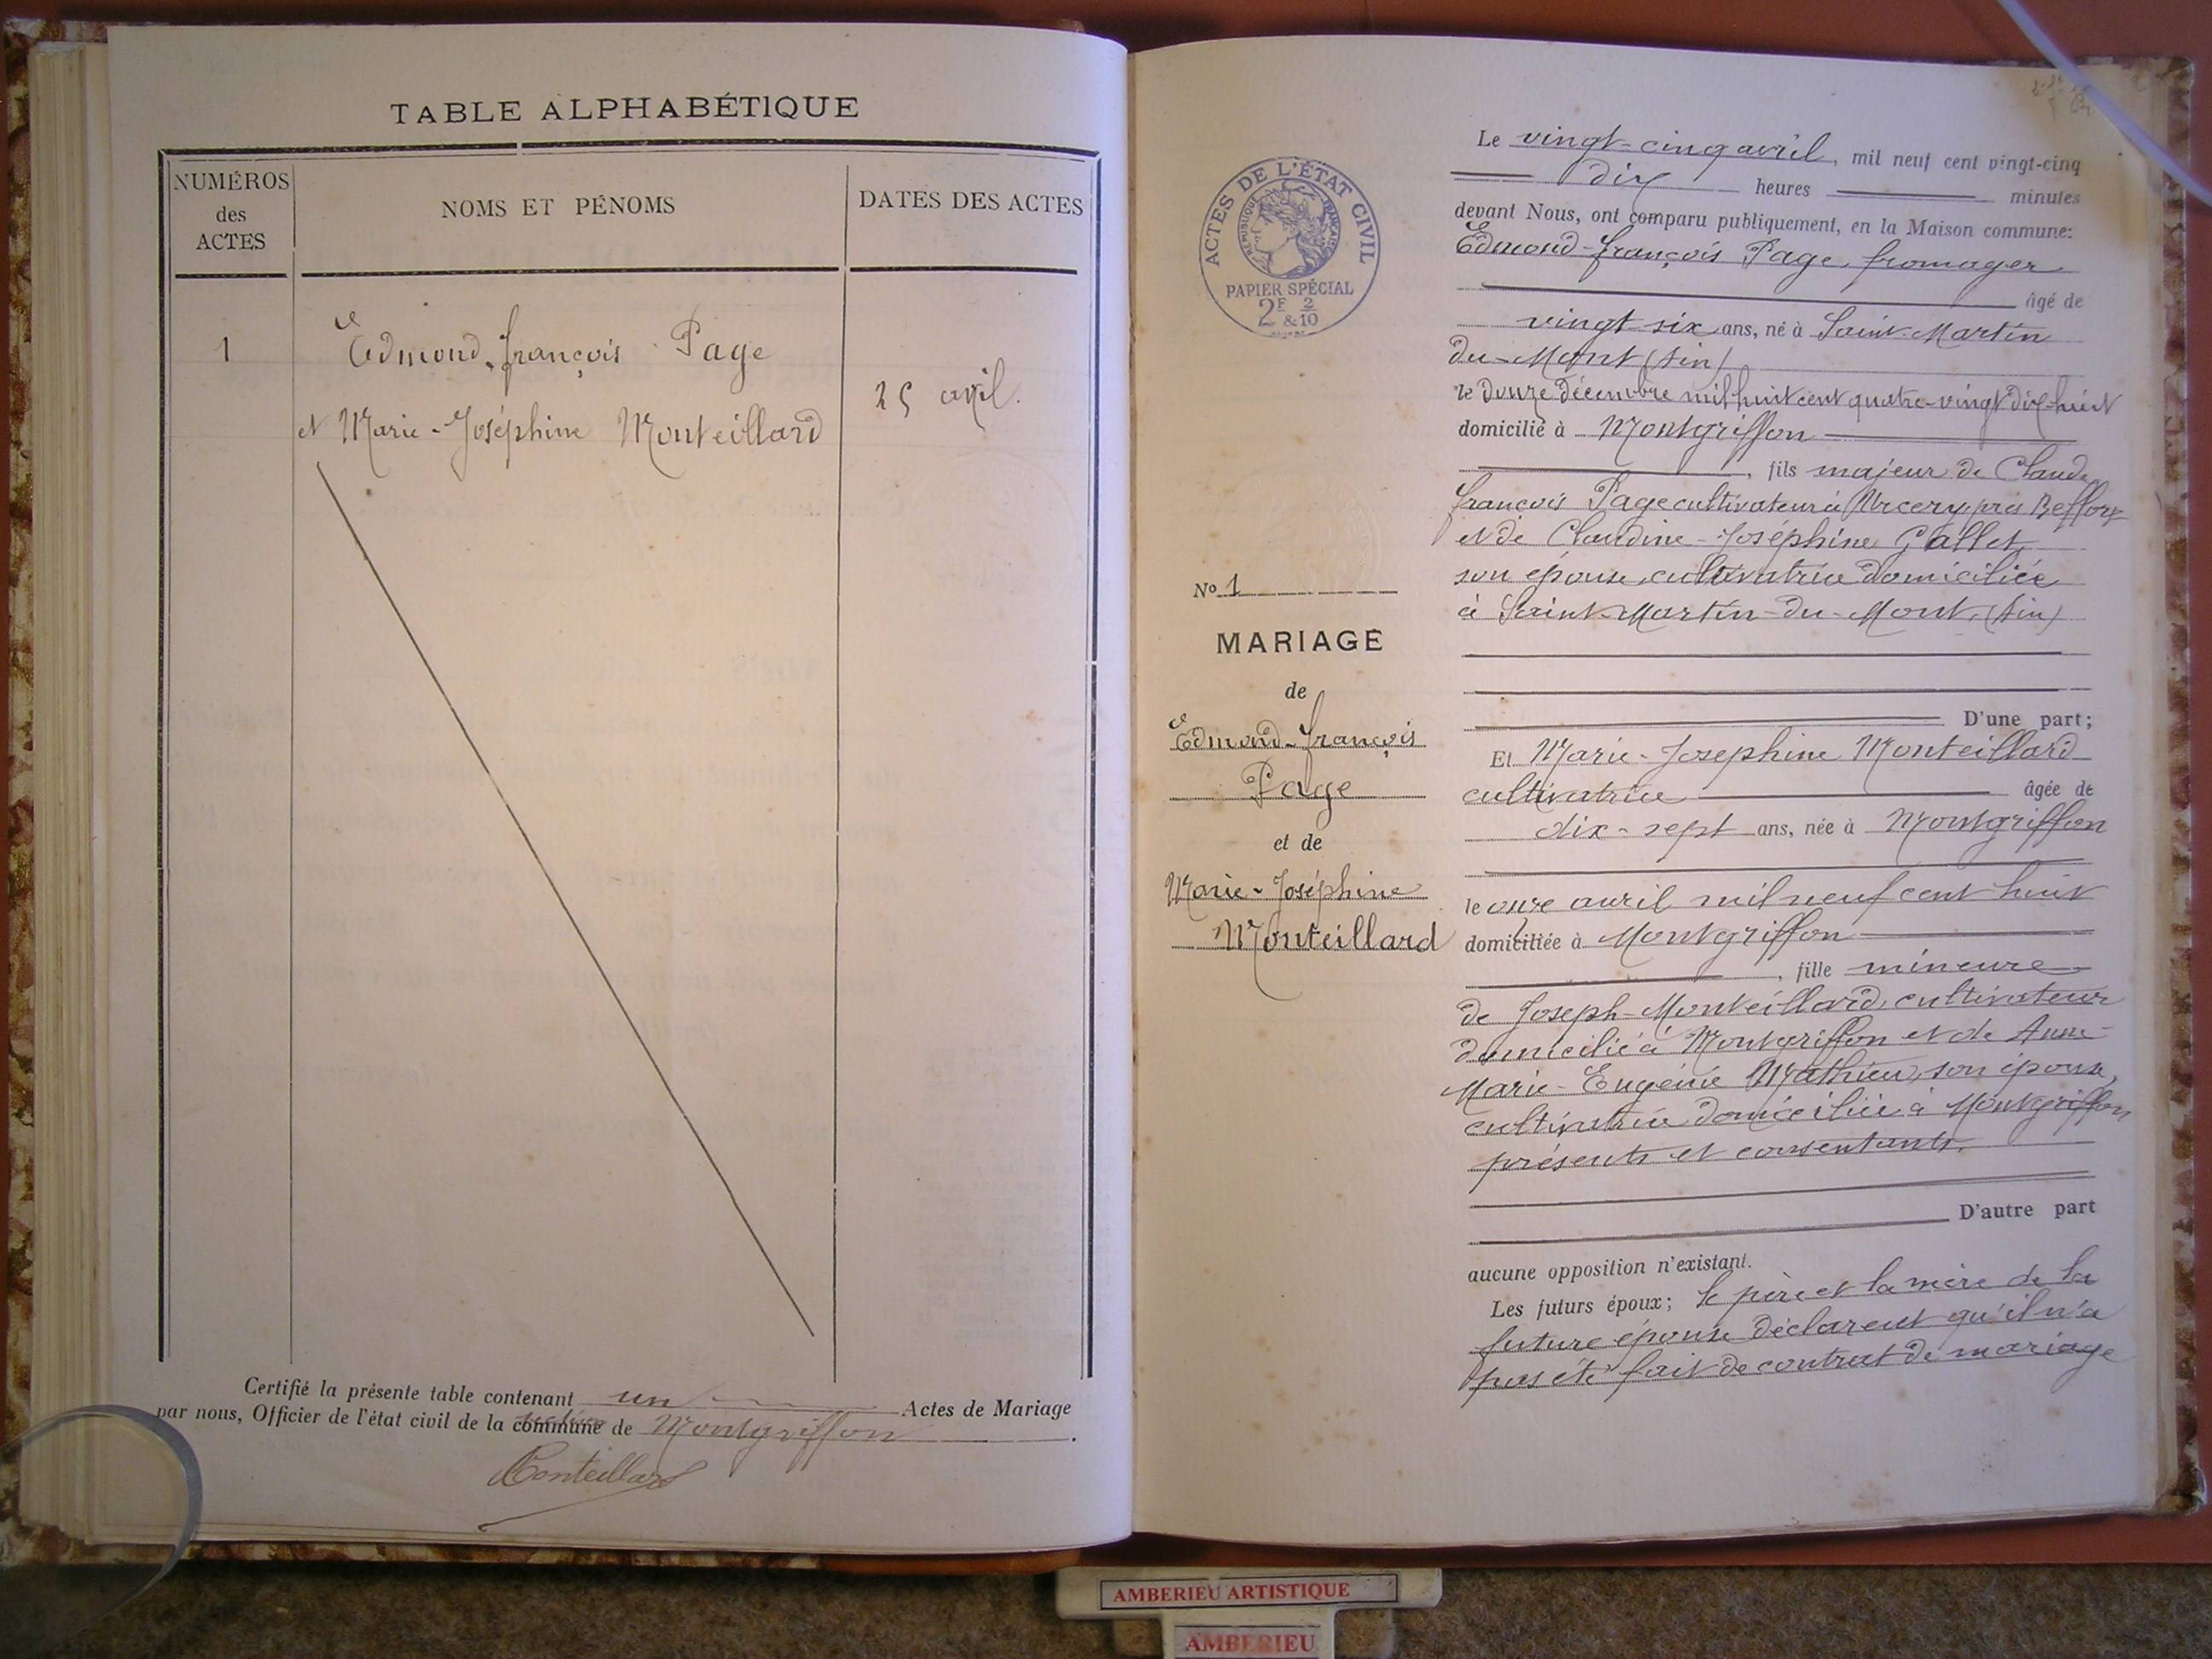 TABLE ALPHABÉTIQUE
NUMÉROS
des
ACTES
NOMS ET PÉNOMS
DATES DES ACTES
1
Edmond-françois Page
25 avril.
et Marie-Joséphine Monteillard
Certifié la présente table contenant un Actes de Mariage
par nous, Officier de l'état civil de la commune de Montgriffon.
Monteillard
ACTES DE L'ÉTAT CIVIL
RÉPUBLIQUE FRANÇAISE
PAPIER SPÉCIAL
2F & 2/10
No 1
MARIAGE
de
Edmond-françois
Page
et de
Marie-Joséphine
Monteillard
Le vingt-cinq avril, mil neuf cent vingt-cinq
dix heures minutes
devant Nous, ont comparu publiquement, en la Maison commune:
Edmond-françois Page, fromager
âgé de
vingt-six ans, né à Saint-Martin
du-Mont (Ain)
le douze décembre mil huit cent quatre-vingt dix-huit
domicilié à Montgriffon
, fils majeur de Claude
françois Page cultivateur à près Belfort
et de Claudine-Joséphine Gallet,
son épouse, cultivatrice domiciliée
à Saint-Martin-du-Mont, (Ain)
D'une part;
Et Marie-Josephine Monteillard
cultivatrice âgée de
dix-sept ans, née à Montgriffon
le onze avril mil neuf cent huit
domiciliée à Montgriffon
, fille mineure
de Joseph-Monteillard, cultivateur
domicilié à Montgriffon et de Anne-
Marie-Eugénie Mathieu, son épouse,
cultivatrice domiciliée à Montgriffon
présents et consentants.
D'autre part
aucune opposition n'existant.
Les futurs époux; le père et la mère de la
future épouse déclarent qu'il n'a
pas été fait de contrat de mariage
AMBERIEU ARTISTIQUE
AMBERIEU